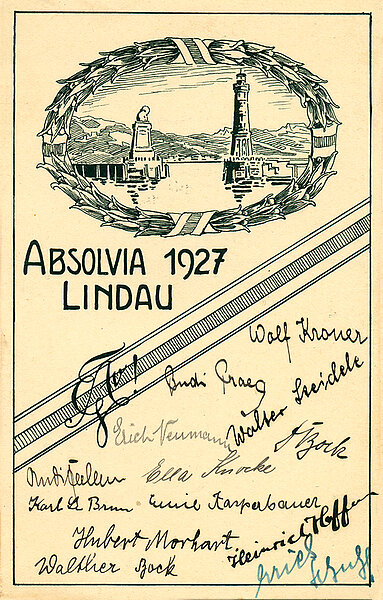 ABSOLVIA 1927
LINDAU
Wolf Kroner
Rudi Praeg
Walter Steidele
Erich Neumann
Bock
Rudi
Ella Knocke
Karl A Brun
Emil Kasperbauer
Hubert Morhart
Heinrich Heffner
Walther Bock
Erich